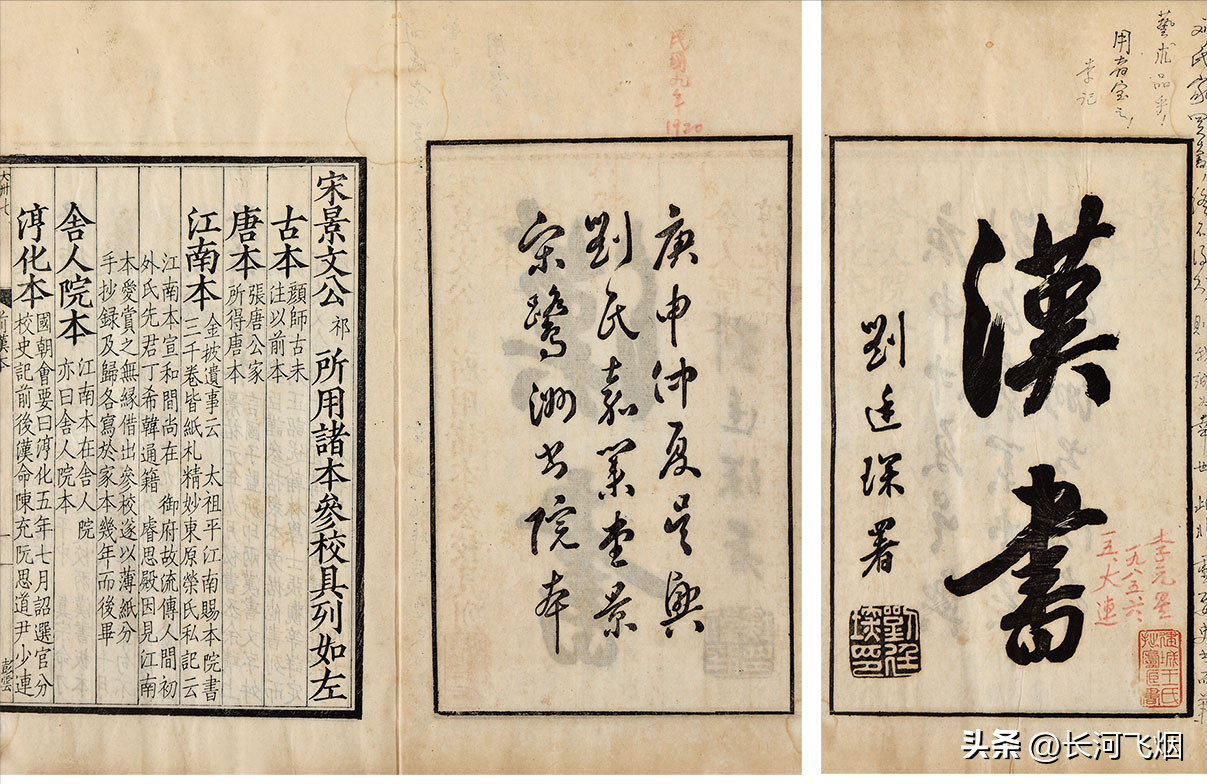 藝术品乎!
用者宝之!
李记
漢書
劉廷琛署
劉廷琛印
一九八五六
一五、大連
民國九年
1920
庚申仲夏吳興
劉氏嘉業堂景
宋鷺洲書院本
宋景文公祁所用諸本參校具列如左
古本
顏師古未
注以前本
唐本
張唐公家
所得唐本
江南本
金披遺事云 太祖平江南賜本院書
三千卷皆紙札精妙東原榮氏私記云
江南本宣和間尚在 御府故流傳人間初
外氏先君丁希韓通籍 睿思殿因見江南
本愛賞之無緣借出參校遂以薄紙分
手抄録及歸各寫於家本幾年而後畢
舍人院本
江南本在舍人院
亦曰舍人院本
淳化本
國朝會要曰淳化五年七月詔選官分
校史記前後漢命陳充阮思道尹少連
头条 @长河飞烟